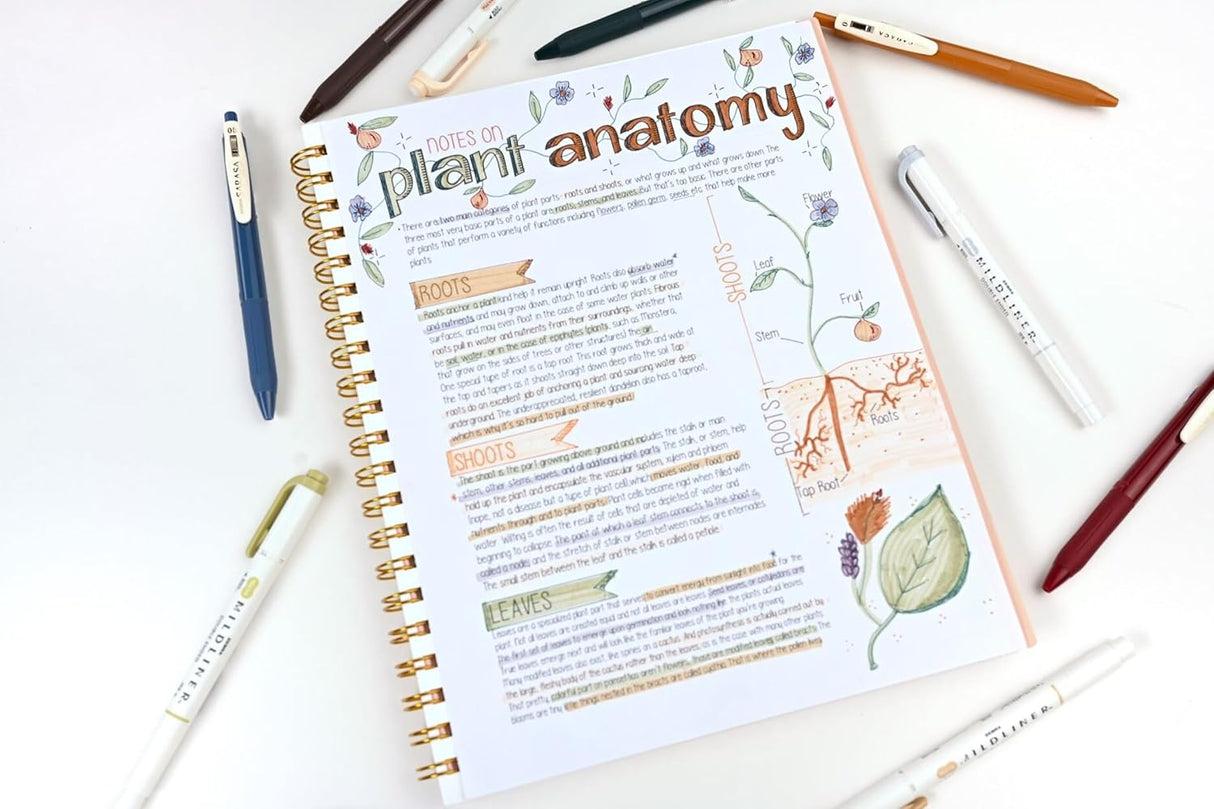 NOTES ON
plant anatomy
• There are two main categories of plant parts- roots and shoots, or what grows up and what grows down. The
three most very basic parts of a plant are roots, stems, and leaves. But that's too basic. There are other parts
of plants that perform a variety of functions including flowers, pollen, germ, seeds etc. that help make more
plants.
ROOTS
Roots anchor a plant and help it remain upright. Roots also absorb water*
and nutrients and may grow down, attach to and climb up walls or other
surfaces, and may even float in the case of some water plants. Fibrous
roots pull in water and nutrients from their surroundings, whether that
be soil, water, or in the case of epiphytes (plants, such as Monstera,
that grow on the sides of trees or other structures) the air.
One special type of root is a tap root. This root grows thick and wide at
the top and tapers as it shoots straight down deep into the soil. Tap
roots do an excellent job of anchoring a plant and sourcing water deep
underground. The underappreciated, resilient dandelion also has a taproot,
which is why it's so hard to pull out of the ground.
SHOOTS
The shoot is the part growing above ground and includes the stalk or main
* stem, other stems, leaves, and all additional plant parts. The stalk, or stem, help
hold up the plant and encapsulate the vascular system, xylem and phloem
(nope, not a disease but a type of plant cell) which moves water, food, and
nutrients through and to plant parts. Plant cells become rigid when filled with
water. Wilting is often the result of cells that are depleted of water and
beginning to collapse. The point at which a leaf stem connects to the shoot is
called a node and the stretch of stalk or stem between nodes are internodes.
The small stem between the leaf and the stalk is called a petiole.
LEAVES
Leaves are a specialized plant part that serves to convert energy from sunlight into food* for the
plant. Not all leaves are created equal and not all leaves are leaves. Seed leaves, or cotyledons are
the first set of leaves to emerge upon germination and look nothing like the plants actual leaves.
True leaves emerge next and will look like the familiar leaves of the plant you're growing.
Many modified leaves also exist, like spines on a cactus. And photosynthesis is actually carried out by
the large, fleshy body of the cactus rather than the leaves, as is the case with many other plants.
That pretty, colorful part on poinsettias aren't flowers, those are modified leaves called bracts. The
blooms are tiny little things nested in the bracts are called cyathia. That is where the pollen lives.
SHOOTS
Flower
Leaf
Fruit
Stem
ROOTS
Roots
Tap Root
SARASA
05
SARASA
MILDLINER
MILDLINER
MILDLINER